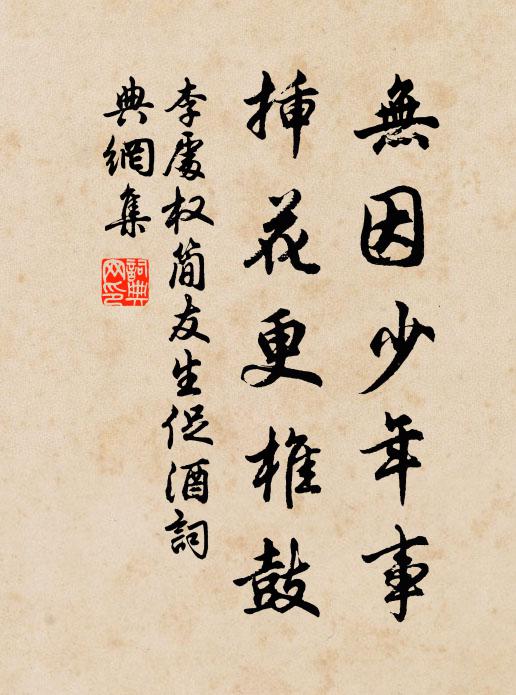 無因少年事
揷花更椎鼓
李處权简友生促酒詞
典網集
詞典网印